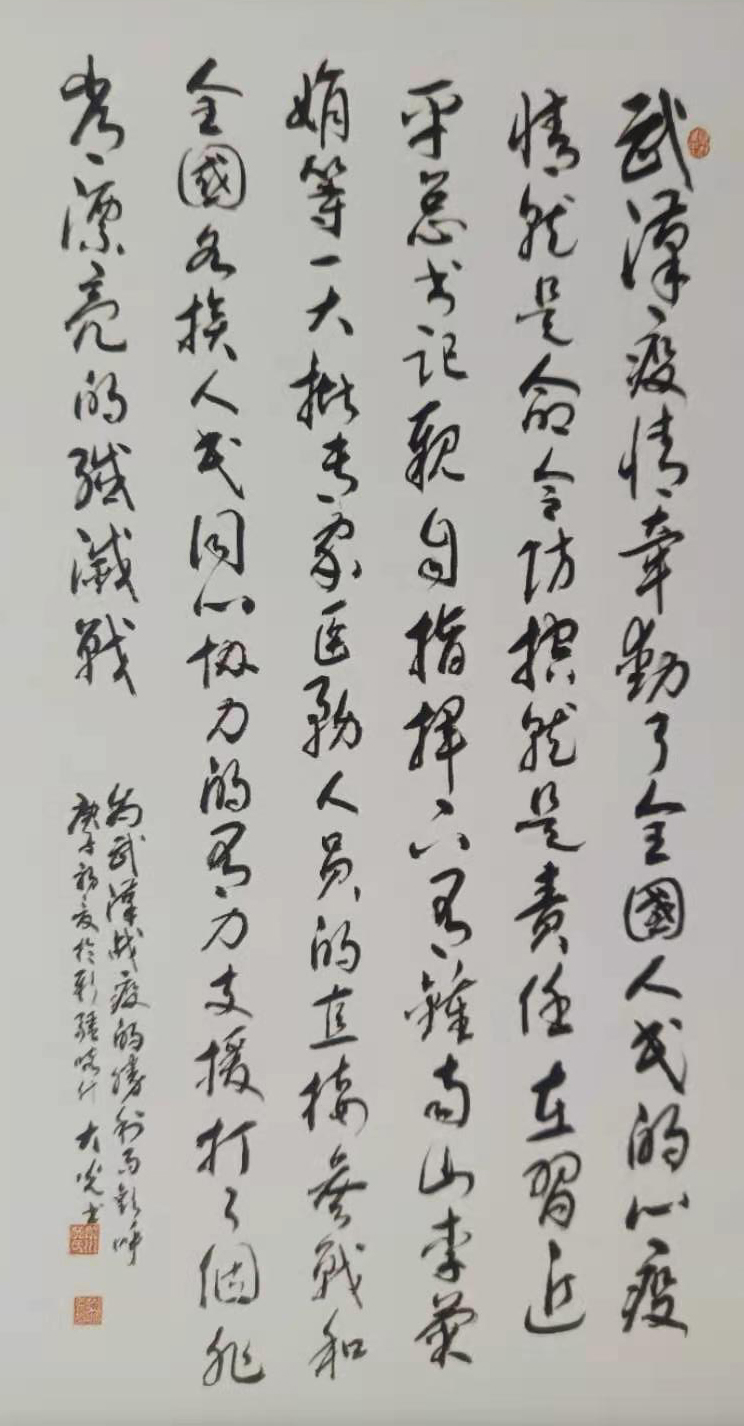 武漢疫情牽動了全國人民的心疫
情就是命令防控就是責任在習近
平总书记親自指揮下有鍾南山李蘭
娟等一大批专家医务人员的直接参戰和
全國各族人民同心協力的有力支援打了個非
常漂亮的殲滅戰
為武漢战疫的勝利而歡呼
庚子初夏於新疆喀什 大光书